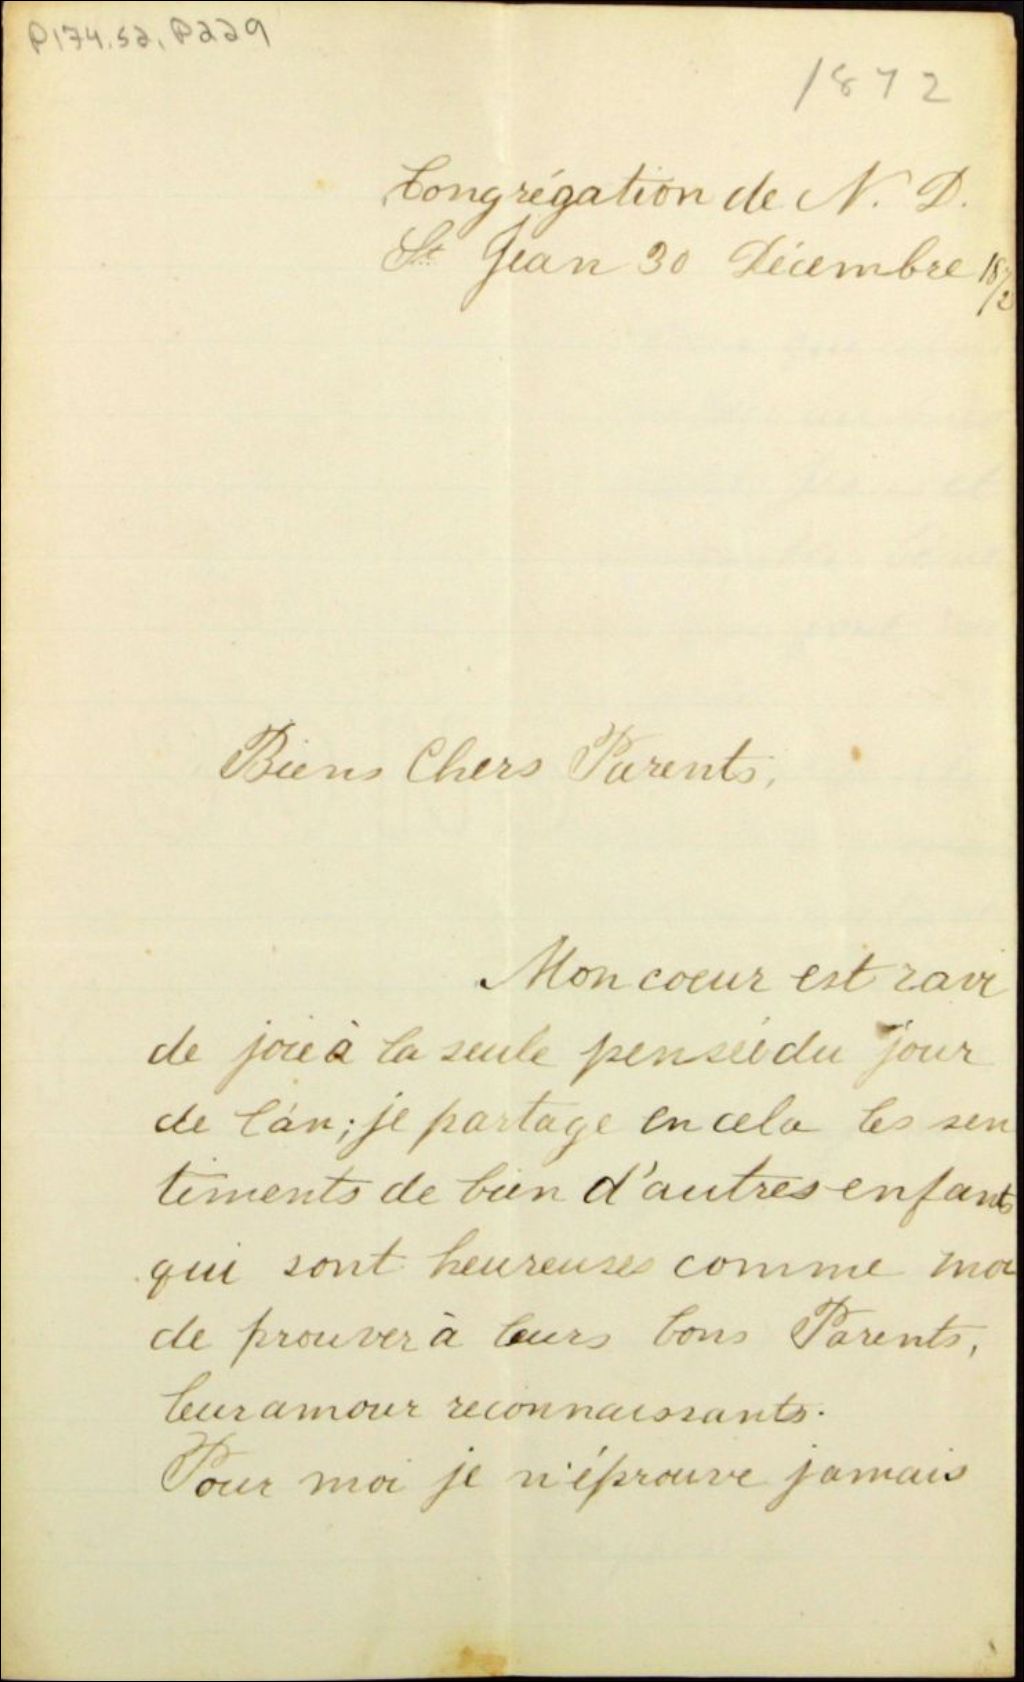 P174,S2,P229
1872
Congrégation de N. D.
St Jean 30 Décembre 18/72
Biens Chers Parents,
Mon coeur est ravi
de joie à la seule penseé du jour
de l'an; je partage en cela les sen
timents de bien d'autres enfants
qui sont heureuses comme moi
de prouver à leurs bons Parents,
leur amour reconnaissants.
Pour moi je n'éprouve jamais